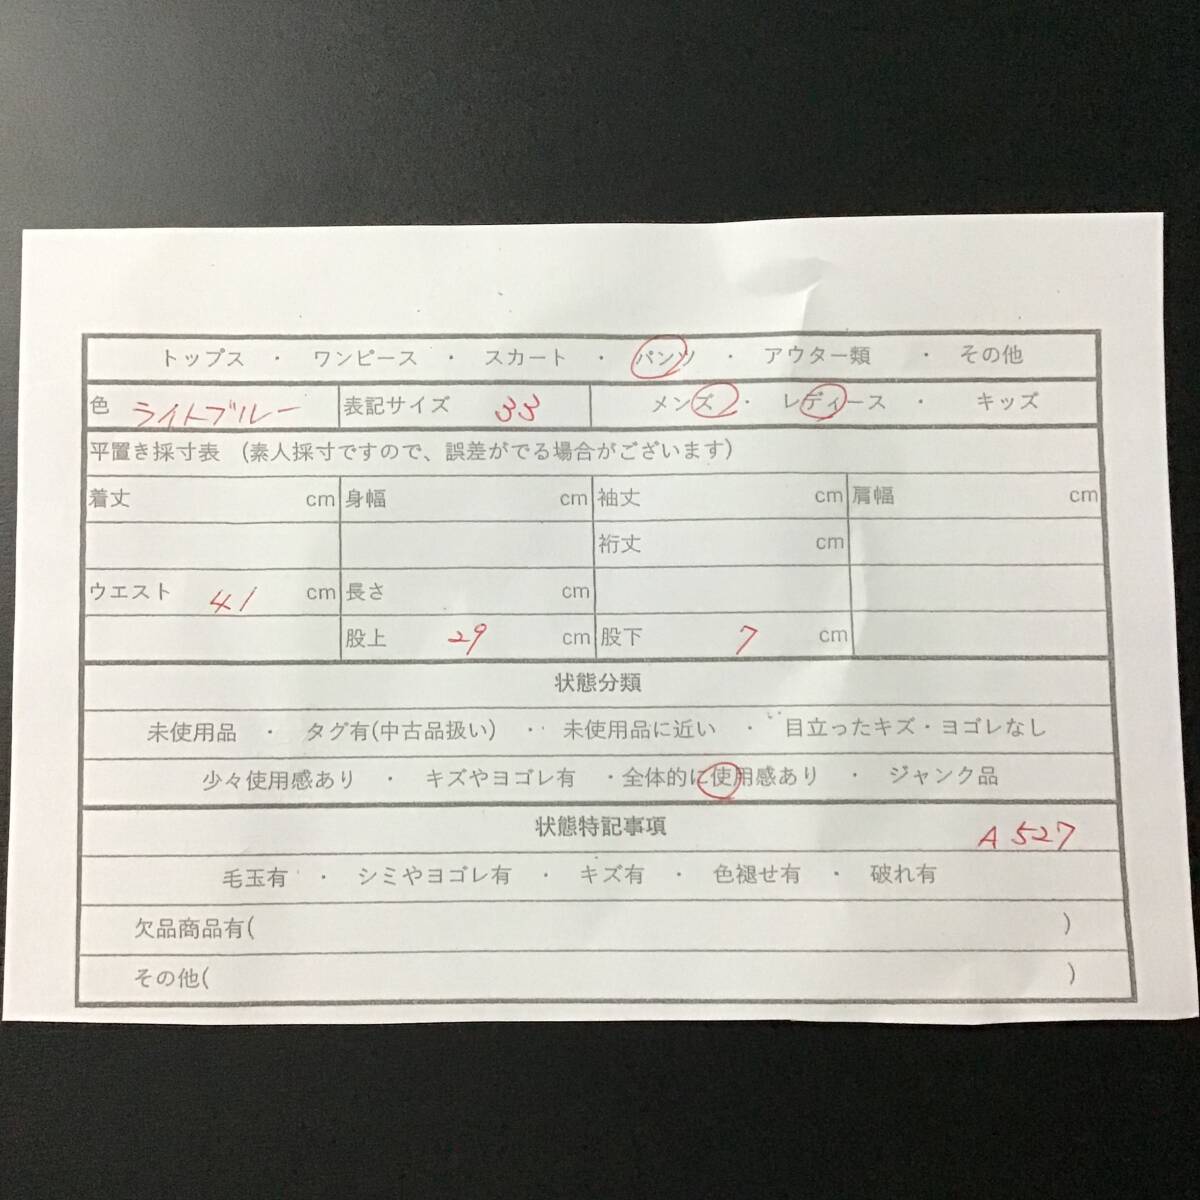 トップス ・ ワンピース ・ スカート ・ パンツ ・ アウター類 ・ その他
色 ライトブルー 表記サイズ 33 メンズ ・ レディース ・ キッズ
平置き採寸表 (素人採寸ですので、誤差がでる場合がございます)
着丈 cm 身幅 cm 袖丈 cm 肩幅 cm
裄丈 cm
ウエスト 41 cm 長さ cm
股上 29 cm 股下 7 cm
状態分類
未使用品 ・ タグ有(中古品扱い) ・ 未使用品に近い ・ 目立ったキズ・ヨゴレなし
少々使用感あり ・ キズやヨゴレ有 ・全体的に使用感あり ・ ジャンク品
状態特記事項 A 527
毛玉有 ・ シミやヨゴレ有 ・ キズ有 ・ 色褪せ有 ・ 破れ有
欠品商品有( )
その他( )